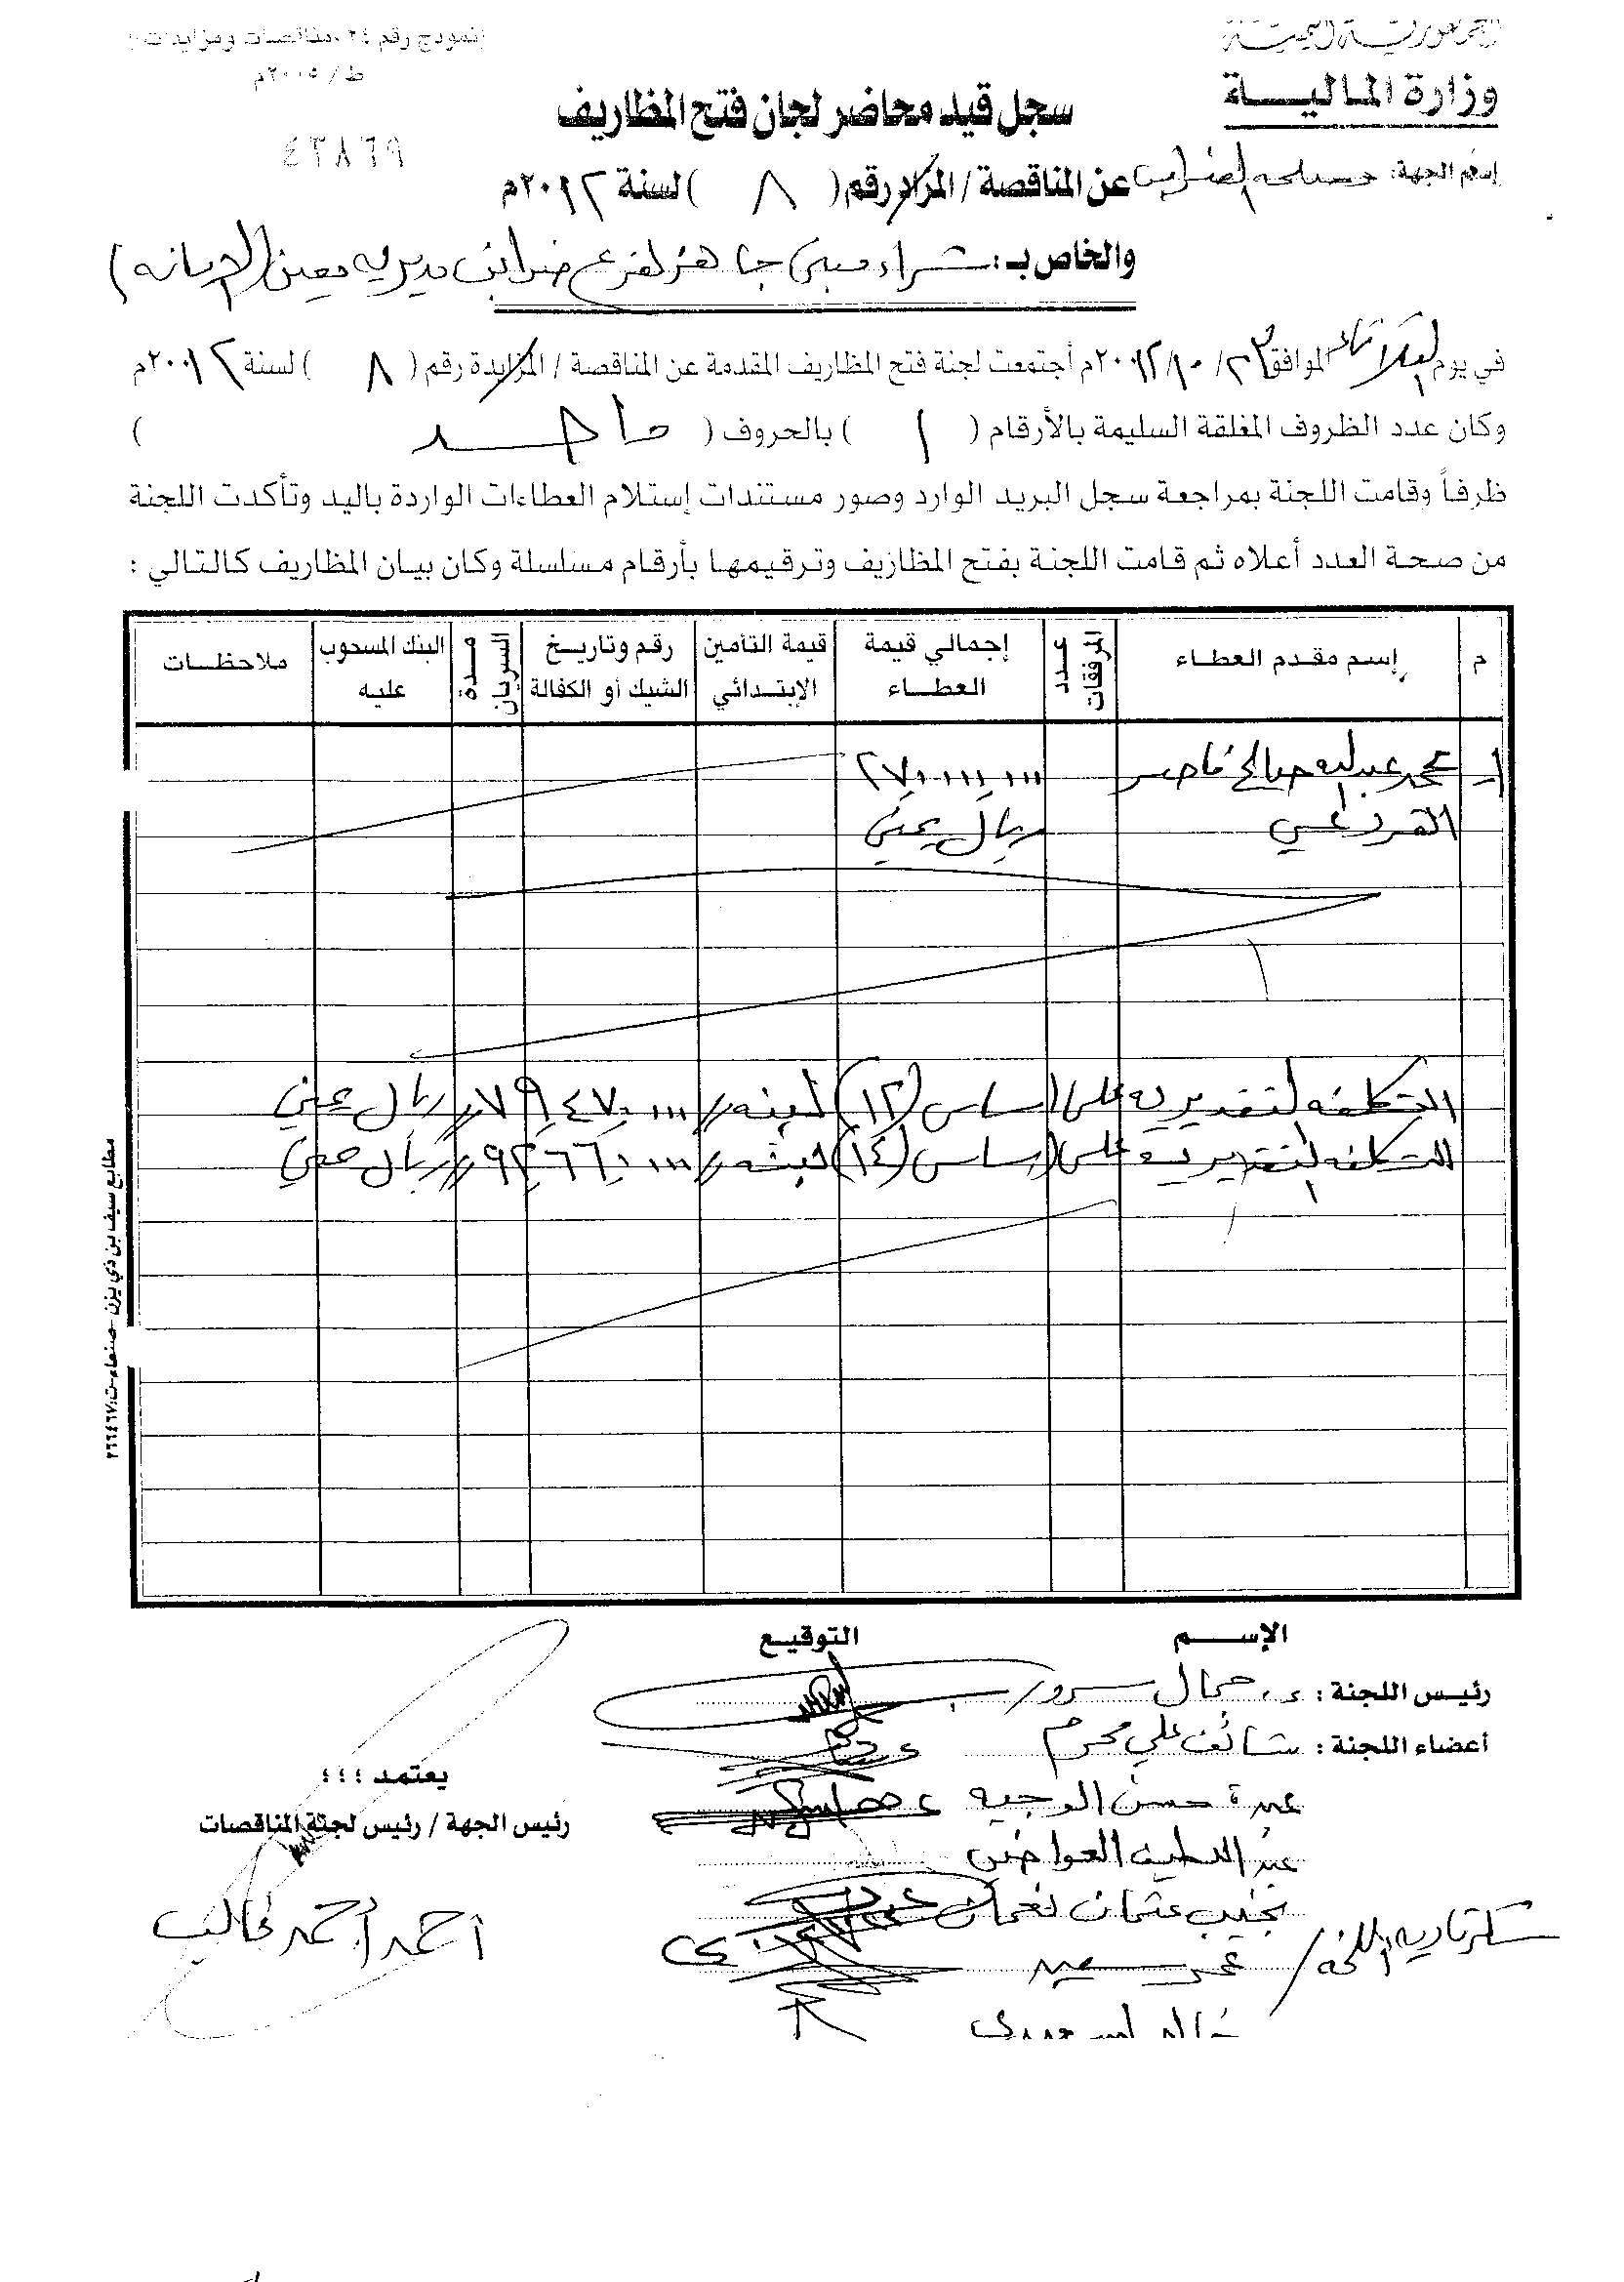 الجمهورية اليمنية
وزارة المالية
إسم الجهة: مصلحة الضرائب
إنموذج رقم ٢٤ مناقصات ومزايدات
ط/٢٠٠٥م
٤٣٨٦٩
سجل قيد محاضر لجان فتح المظاريف
عن المناقصة / المزاد رقم ( ٨ ) لسنة ٢٠١٢م
والخاص بـ : شراء مبنى جاهز لفرع ضرائب مديرية معين (الامانه)
في يوم الثلاثاء الموافق ٢٣/١٠/٢٠١٢م أجتمعت لجنة فتح المظاريف المقدمة عن المناقصة / المزايدة رقم ( ٨ ) لسنة ٢٠١٢م
وكان عدد الظروف المغلقة السليمة بالأرقام ( ١ ) بالحروف ( واحد )
ظرفاً وقامت اللجنة بمراجعة سجل البريد الوارد وصور مستندات إستلام العطاءات الواردة باليد وتأكدت اللجنة
من صحة العدد أعلاه ثم قامت اللجنة بفتح المظاريف وترقيمها بأرقام مسلسلة وكان بيان المظاريف كالتالي :
م إسم مقدم العطاء عدد المرفقات إجمالي قيمة العطاء قيمة التأمين الإبتدائي رقم وتاريخ الشيك أو الكفالة مدة السريان البنك المسحوب عليه ملاحظات
١- محمد عبدالله صالح ناصر ٢٧٠,٠٠٠,٠٠٠
القردعي ريال يمني
التكلفه التقديريه على اساس (١٢) لبنه // ٧٩,٤٧٠,٠٠٠ // ريال يمني
التكلفه التقديريه على اساس (١٤) لبنه // ٩٢,٦٦٠,٠٠٠ // ريال يمني
مطابع سيف بن ذي يزن - صنعاء - ت: ٢٦٩٤٦٧
الإسم التوقيع
رئيس اللجنة : د. جمال سرور
أعضاء اللجنة : شائف علي محرم
عبدة حسن الوجيه
عبد اللطيف العواضي
نجيب عثمان نعمان
سكرتارية اللجنة / عمر سعيد
يعتمد ؛؛؛
رئيس الجهة / رئيس لجنة المناقصات
احمد احمد غالب